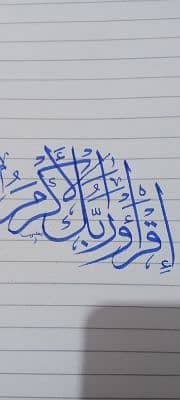 إِقْرَأْ وَرَبُّكَ الْأَكْرَمُ